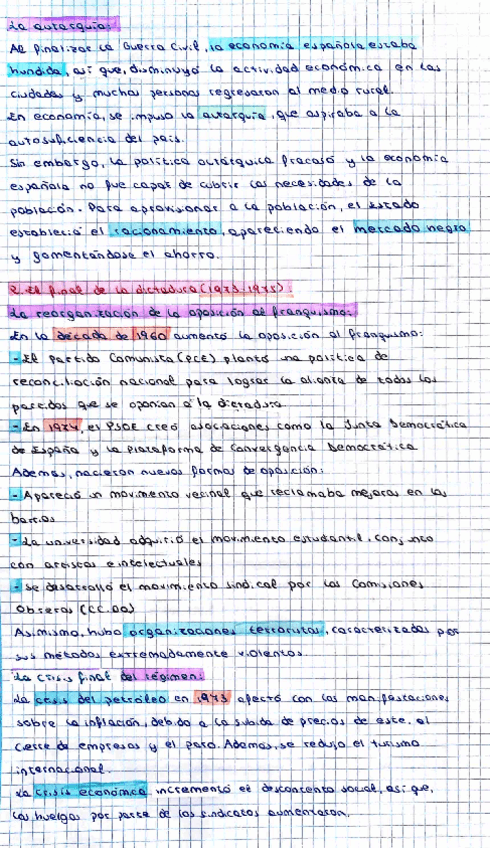 La autarquía:
Al finalizar la Guerra Civil, la economía española estaba
hundida, así que, disminuyó la actividad económica en las
ciudades y muchas personas regresaron al medio rural.
En economía, se impuso la autarquía, que aspiraba a la
autosuficiencia del país.
Sin embargo, la política autárquica fracasó y la economía
española no fue capaz de cubrir las necesidades de la
población. Para aprovisionar a la población, el Estado
estableció el racionamiento, apareciendo el mercado negro
y fomentándose el ahorro.
2. El final de la dictadura (1973-1975)
La reorganización de la oposición al franquismo:
En la década de 1960 aumentó la oposición al franquismo:
- El Partido Comunista (PCE) planteó una política de
reconciliación nacional para lograr la alianza de todos los
partidos que se oponían a la dictadura.
- En 1974, el PSOE creó asociaciones como la Junta Democrática
de España y la Plataforma de Convergencia Democrática
Además, nacieron nuevas formas de oposición:
- Apareció un movimiento vecinal que reclamaba mejoras en los
barrios
- La universidad adquirió el movimiento estudiantil, conjunto
con artistas e intelectuales
- Se desarrolló el movimiento sindical por las Comisiones
Obreras (CC.OO)
Asimismo, hubo organizaciones terroristas, caracterizadas por
sus métodos extremadamente violentos
La crisis final del régimen:
La crisis del petróleo en 1973 afectó con las manifestaciones
sobre la inflación, debido a la subida de precios de este, el
cierre de empresas y el paro. Además, se redujo el turismo
internacional.
La crisis económica incrementó el descontento social, así que,
las huelgas por parte de los sindicatos aumentaron.